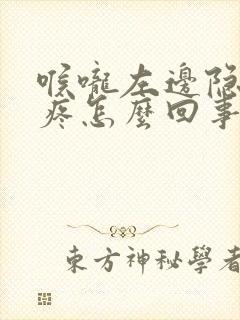 喉嚨左邊隐
疼怎麼回事
東方神秘學者